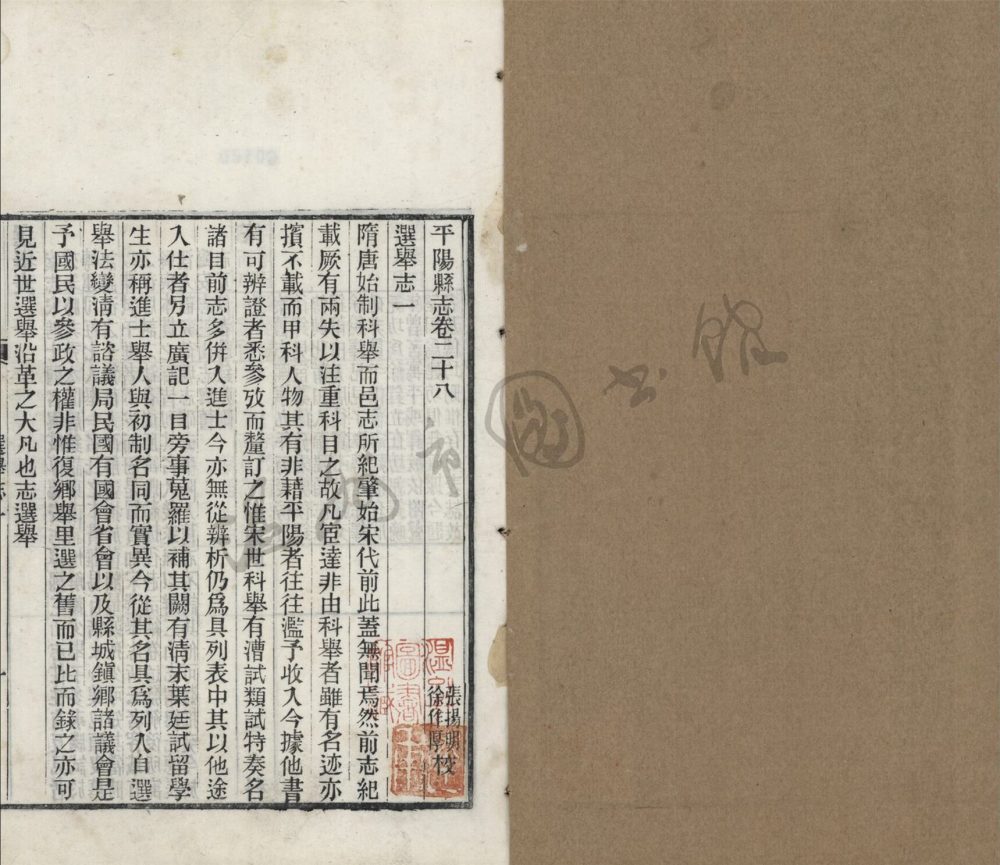 平陽縣志卷二十八
張揚明
徐作厚校
選舉志一
隋唐始制科舉而邑志所紀肇始宋代前此蓋無聞焉然前志紀
載厥有兩失以注重科目之故凡宦達非由科舉者雖有名迹亦
擯不載而甲科人物其有非籍平陽者往往濫予收入今據他書
有可辨證者悉參攷而釐訂之惟宋世科舉有漕試類試特奏名
諸目前志多併入進士今亦無從辨析仍爲具列表中其以他途
入仕者另立廣記一目旁事蒐羅以補其闕有淸末葉廷試留學
生亦稱進士舉人與初制名同而實異今從其名具爲列入自選
舉法變淸有諮議局民國有國會省會以及縣城鎭鄉諸議會是
予國民以參政之權非惟復鄉舉里選之舊而已比而錄之亦可
見近世選舉沿革之大凡也志選舉
圖書館